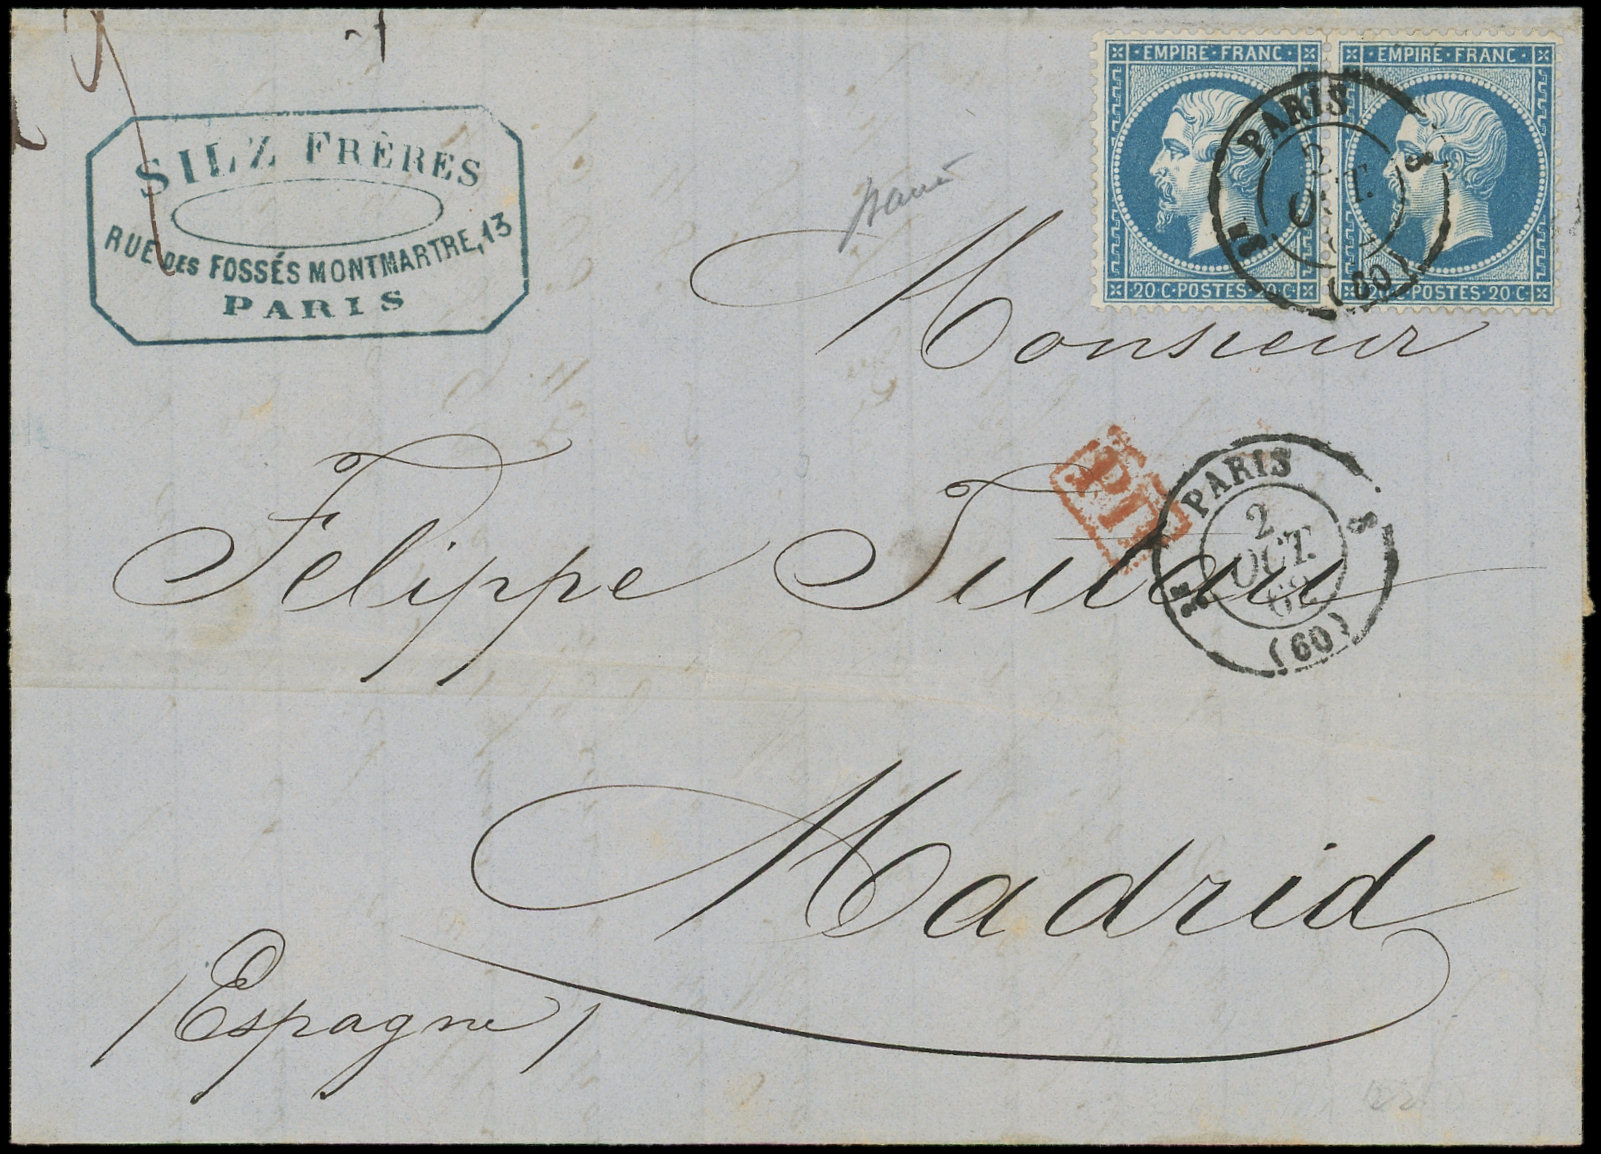 SILZ FRÈRES
RUE DES FOSSÉS MONTMARTRE, 13
PARIS
EMPIRE · FRANC ·
20 C · POSTES · 20 C
EMPIRE · FRANC ·
20 C · POSTES · 20 C
PARIS
2
OCT.
(60)
Monsieur
Felippe Tubau
PD
PARIS
2
OCT.
62
(60)
Madrid
/Espagne/